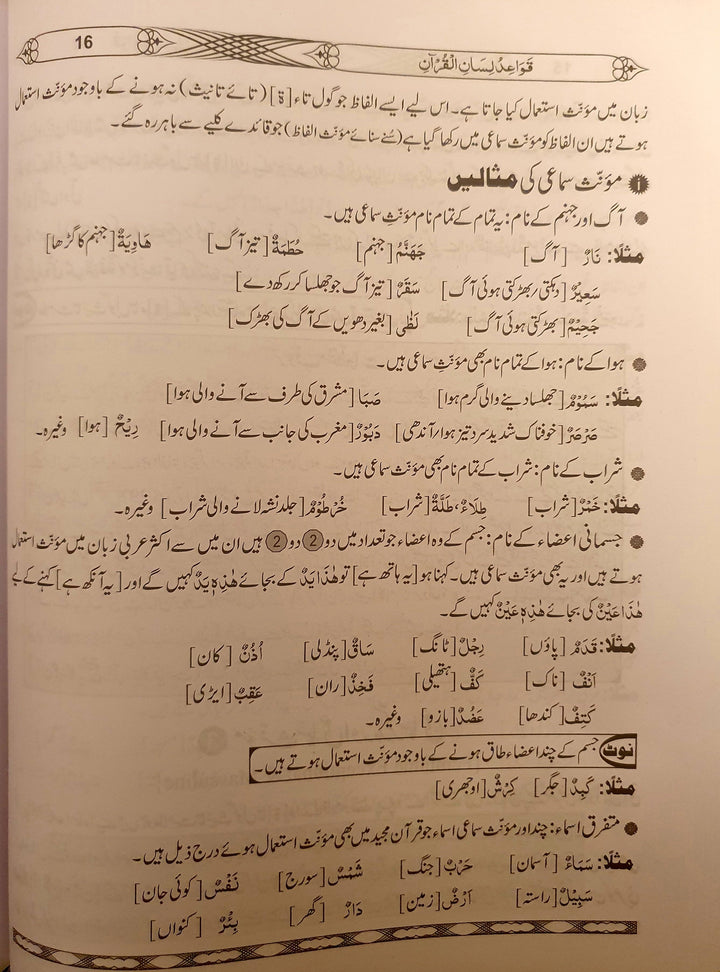 16
قَوَاعِدُ لِسَانِ الْقُرْآنِ
زبان میں مؤنّث استعمال کیا جاتا ہے۔ اس لیے ایسے الفاظ جو گول تاء [ة] (تائے تانیث) نہ ہونے کے باوجود مؤنّث استعمال
ہوتے ہیں ان الفاظ کو مؤنّث سماعی میں رکھا گیا ہے (سُنے سنائے مؤنّث الفاظ) جو قائدے کلیے سے باہر رہ گئے۔
i مؤنّث سماعی کی مثالیں
آگ اور جہنم کے نام: یہ تمام کے تمام نام مؤنّثِ سماعی ہیں۔
مثلًا: نَارٌ [آگ] جَهَنَّمُ [جہنم] حُطَمَةٌ [تیز آگ] هَاوِيَةٌ [جہنم کا گڑھا]
سَعِيرٌ [دہکتی ر بھڑکتی ہوئی آگ] سَقَرٌ [تیز آگ جو جھلسا کر رکھ دے]
جَحِيْمٌ [بھڑکتی ہوئی آگ] لَظٰى [بغیر دھویں کے آگ کی بھڑک]
ہوا کے نام: ہوا کے تمام نام بھی مؤنّثِ سماعی ہیں۔
مثلًا: سَمُوْمٌ [جھلسا دینے والی گرم ہوا] صَبَا [مشرق کی طرف سے آنے والی ہوا]
صَرْصَرٌ [خوفناک شدید سرد تیز ہوا ر آندھی] دَبُوْرٌ [مغرب کی جانب سے آنے والی ہوا] رِيْحٌ [ہوا] وغیرہ۔
شراب کے نام: شراب کے تمام نام بھی مؤنّث سماعی ہیں۔
مثلًا: خَمْرٌ [شراب] طِلَاءٌ، طَلَّةٌ [شراب] خُرْطُوْمٌ [جلد نشہ لانے والی شراب] وغیرہ۔
جسمانی اعضاء کے نام: جسم کے وہ اعضاء جو تعداد میں دو 2 دو 2 ہیں ان میں سے اکثر عربی زبان میں مؤنّث استعمال
ہوتے ہیں اور یہ بھی مؤنّث سماعی ہیں۔ کہنا ہو [یہ ہاتھ ہے] تو هٰذَا يَدٌ کے بجائے هٰذِهٖ يَدٌ کہیں گے اور [یہ آنکھ ہے] کہنے کے لیے
هٰذَا عَيْنٌ کی بجائے هٰذِهٖ عَيْنٌ کہیں گے۔
مثلًا: قَدَمٌ [پاؤں] رِجْلٌ [ٹانگ] سَاقٌ [پنڈلی] اُذُنٌ [کان]
اَنْفٌ [ناک] كَفٌّ [ہتھیلی] فَخِذٌ [ران] عَقِبٌ [ایڑی]
كَتِفٌ [کندھا] عَضُدٌ [بازو] وغیرہ۔
نوٹ جسم کے چند اعضاء طاق ہونے کے باوجود مؤنّث استعمال ہوتے ہیں۔
مثلًا: كَبِدٌ [جگر] كِرْشٌ [اوجھری]
متفرق اسماء: چند اور مؤنّث سماعی اسماء جو قرآن مجید میں بھی مؤنّث استعمال ہوئے درج ذیل ہیں۔
مثلًا: سَمَاءٌ [آسمان] حَرْبٌ [جنگ] شَمْسٌ [سورج] نَفْسٌ [کوئی جان]
سَبِيْلٌ [راستہ] اَرْضٌ [زمین] دَارٌ [گھر] بِئْرٌ [کنواں]